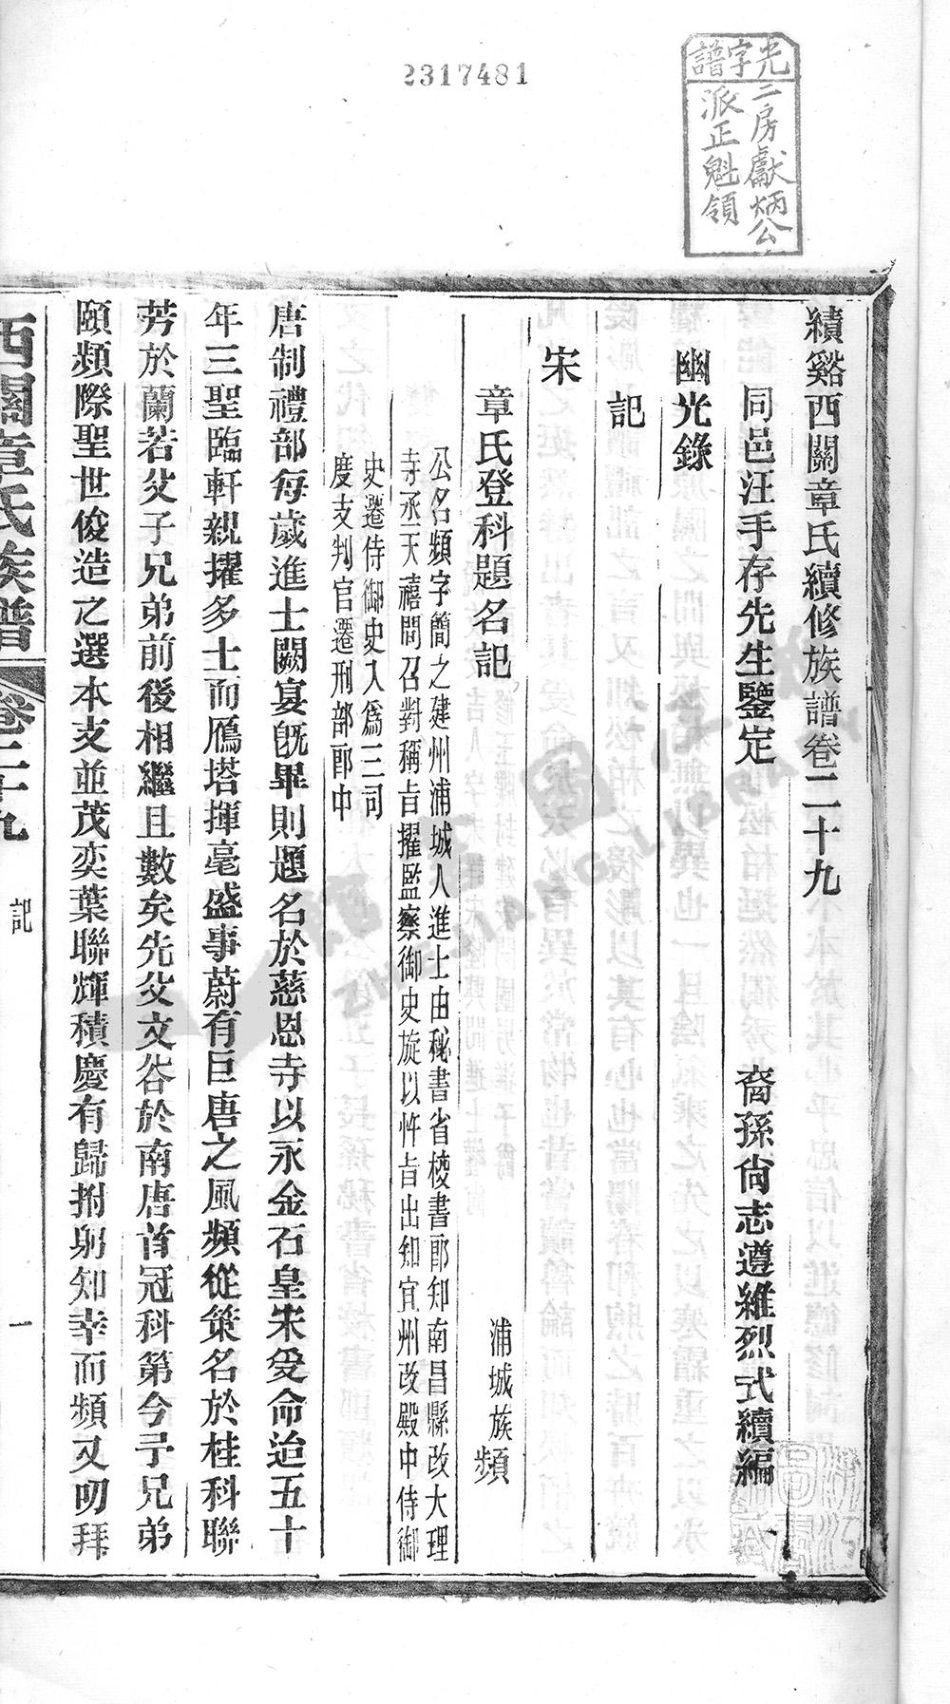 2317481
光字譜
二房獻炳公
派正魁領
績谿西關章氏續修族譜卷二十九
同邑汪手存先生鑒定 裔孫尙志遵維烈式續編
幽光錄
記
宋
章氏登科題名記 浦城族頻
公名頻字簡之建州浦城人進士由秘書省校書郎知南昌縣改大理
寺丞天禧間召對稱旨擢監察御史旋以忤旨出知宣州改殿中侍御
史遷侍御史入爲三司
度支判官遷刑部郎中
唐制禮部每歲進士闕宴旣畢則題名於慈恩寺以永金石皇宋受命迨五十
年三聖臨軒親擢多士而鴈塔揮毫盛事蔚有巨唐之風頻從策名於桂科聯
芳於蘭若父子兄弟前後相繼且數矣先父文谷於南唐首冠科第今予兄弟
頤頻際聖世俊造之選本支並茂奕葉聯輝積慶有歸拊躬知幸而頻又叨拜
西關章氏族譜 卷二十九 記 一
浙江圖書館
ZHEJIANG LIBRARY